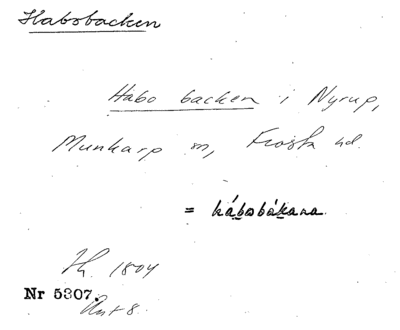 Habobacken
Habo backen i Nyrup,
Munkarp sn, Frosta hd.
= hábobákana
Th. 1804
Nr 5307.
Ant 8.